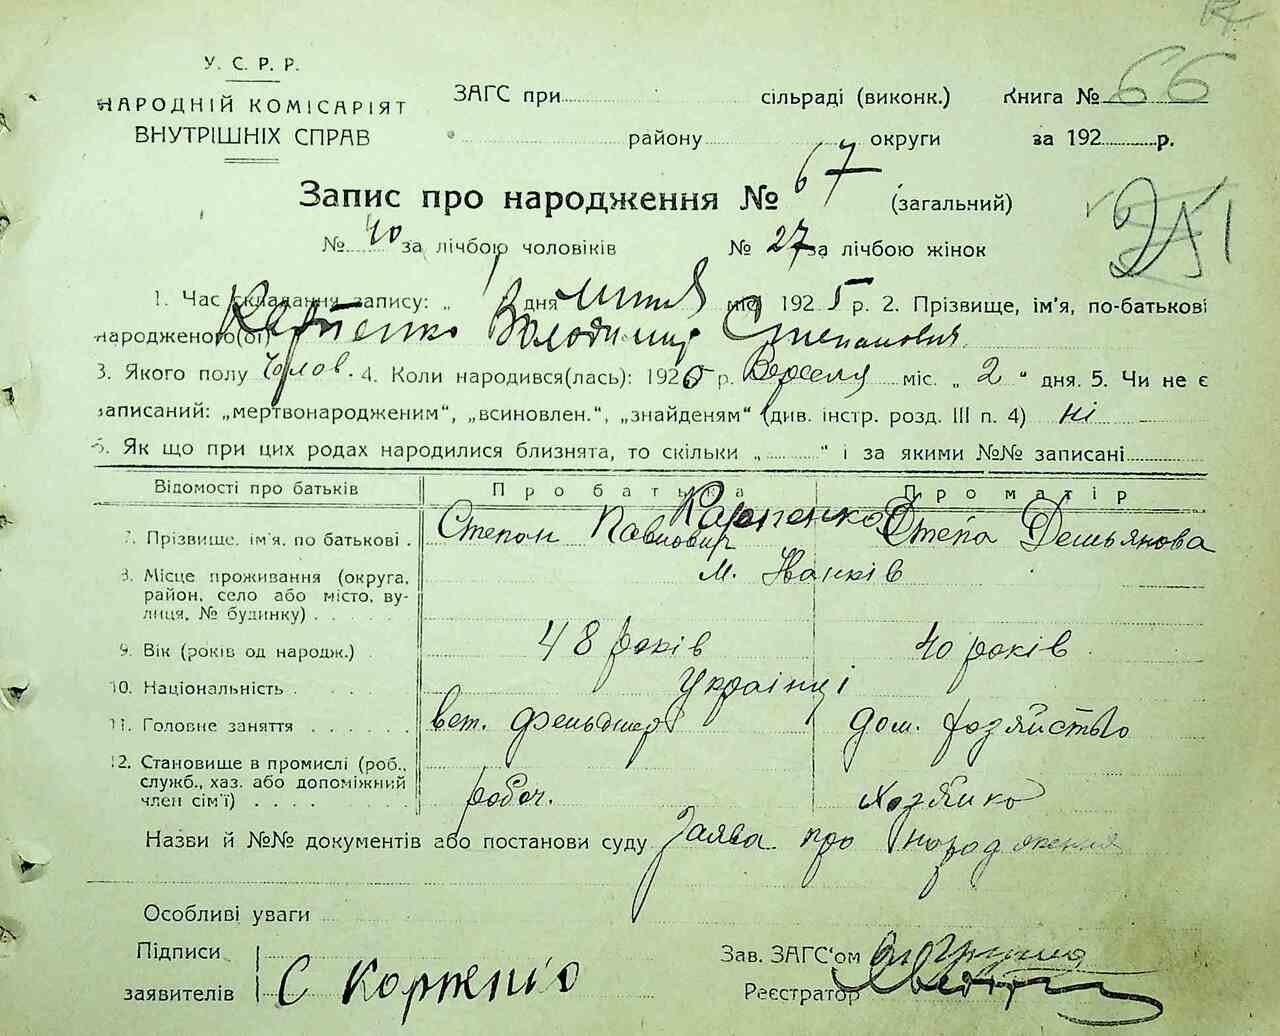 У. С. Р. Р.
НАРОДНІЙ КОМІСАРІЯТ
ВНУТРІШНІХ СПРАВ
ЗАГС при сільраді (виконк.) Книга № 66
району округи за 192 р.
Запис про народження № 67 (загальний)
№ 40 за лічбою чоловіків № 27 за лічбою жінок
1. Час складання запису: „ 1 дня липня міс. 192 5 р. 2. Прізвище, ім'я, по-батькові
народженого(ої) Карпенко Володимир Степанович
3. Якого полу Чолов. 4. Коли народився(лась): 192 5 р. міс. „ 2 " дня. 5. Чи не є
записаний: „мертвонародженим", „всиновлен.", „знайденям" (див. інстр. розд. III п. 4) ні
6. Як що при цих родах народилися близнята, то скільки „ " і за якими №№ записані
Відомості про батьків Про батька Про матір
7. Прізвище, ім'я, по батькові . Степан Павлович Карпенко Степа Демьянова
8. Місце проживання (округа, район, село або місто, ву-
лиця, № будинку) . . . . м. Іванків
9. Вік (років од народж.) 48 років 40 років
10. Національність . . . . . Українці
11. Головне заняття . . . . . . вет. фельдшер дом. хозяйство
12. Становище в промислі (роб.,
служб., хаз. або допоміжний
член сім'ї) . . . . робоч. хозяйка
Назви й №№ документів або постанови суду Заява про народження
Особливі уваги
Підписи
заявителів С Карпенко
Зав. ЗАГС'ом
Реєстратор